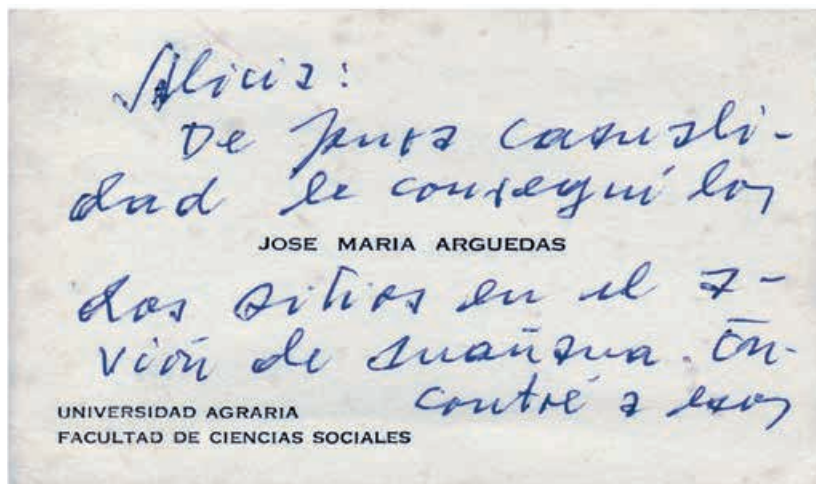 Alicia:
De pura casuali-
dad le conseguí los
JOSE MARIA ARGUEDAS
dos sitios en el a-
vión de mañana. En-
contré a esos
UNIVERSIDAD AGRARIA
FACULTAD DE CIENCIAS SOCIALES